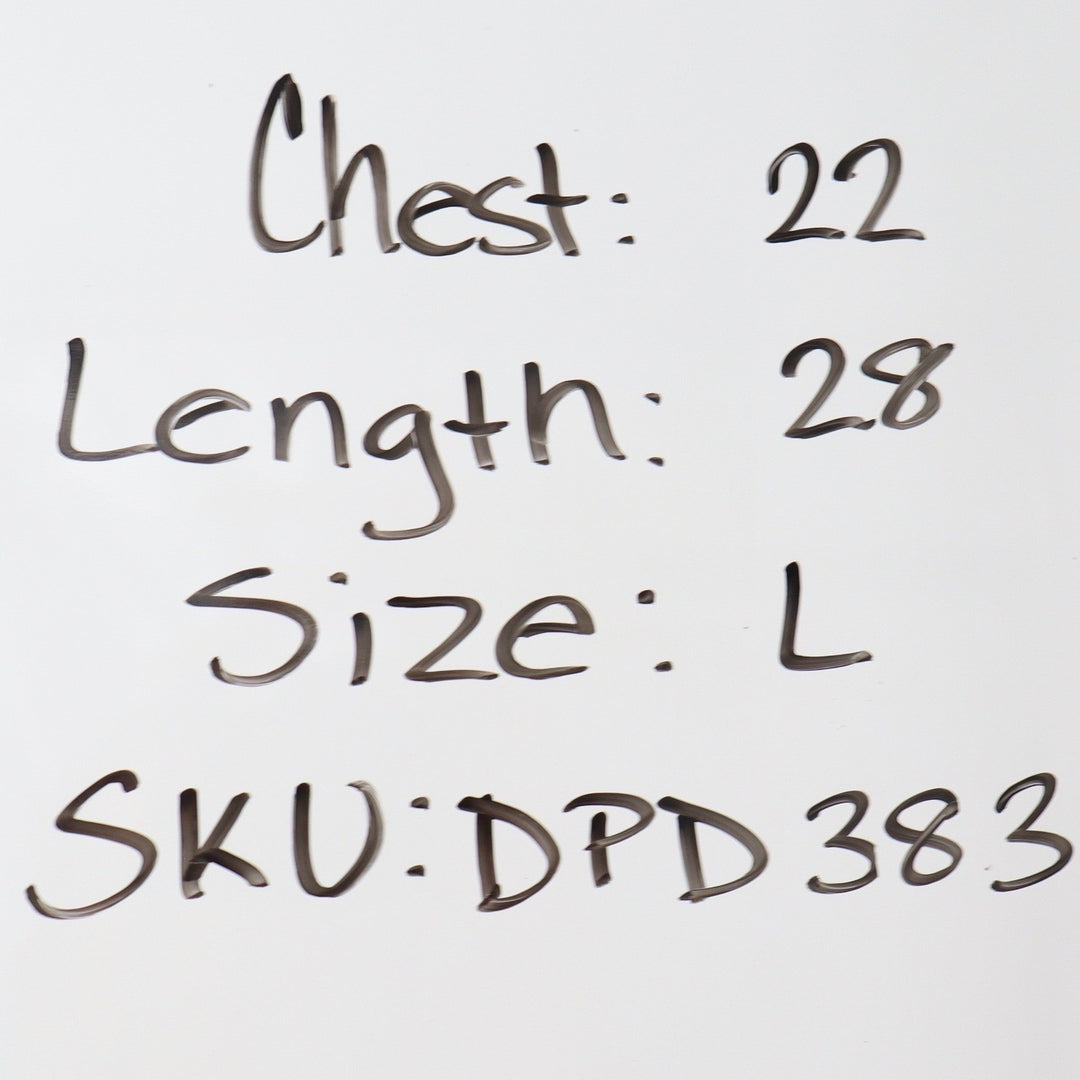 Chest: 22
Length: 28
Size: L
SKU: DPD 383